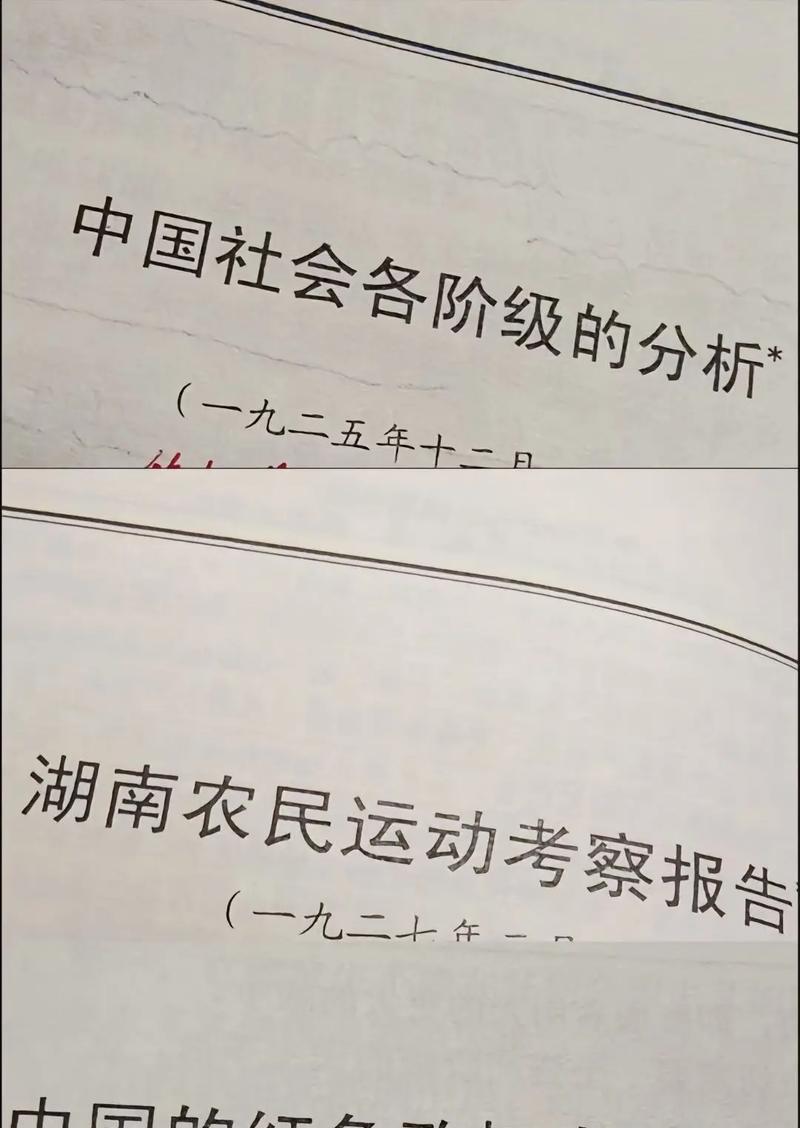 中国社会各阶级的分析*
（一九二五年十二月
湖南农民运动考察报告
（一九二七年
中国的红色政权